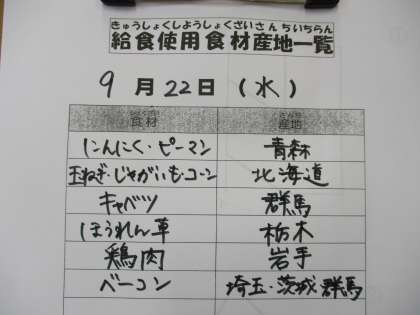 きゅうしょくしようしょくざいさんちいちらん
給食使用食材産地一覧
9月22日(水)
食材 産地
にんにく・ピーマン 青森
玉ねぎ・じゃがいも・コーン 北海道
キャベツ 群馬
ほうれん草 栃木
鶏肉 岩手
ベーコン 埼玉・茨城 群馬